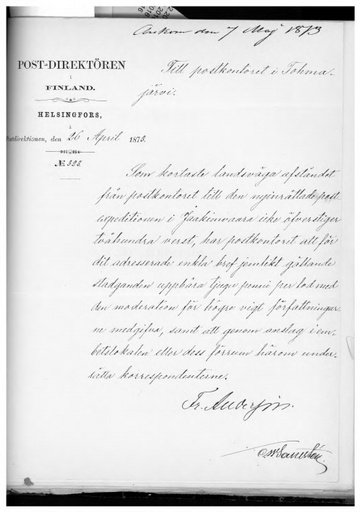 Ankom den 7 Maj 1873
POST-DIREKTÖREN
i
FINLAND.
HELSINGFORS,
å
Postdirektionen, den 26 April 1873.
№ 322.
Till postkontoret i Tohma-
järvi.
Som kortaste landsväga afståndet
från postkontoret till den nyinrättade post-
expeditionen i Jaakimvaara icke öfverstiger
tvåhundra verst, har postkontoret att för
dit adresserade enkla bref jemlikt gällande
stadganden uppbära tjugu penni per lod med
den moderation för högre vigt författningar-
ne medgifva, samt att genom anslag i em-
betslokalen eller dess förrum härom under-
rätta korrespondenterne.